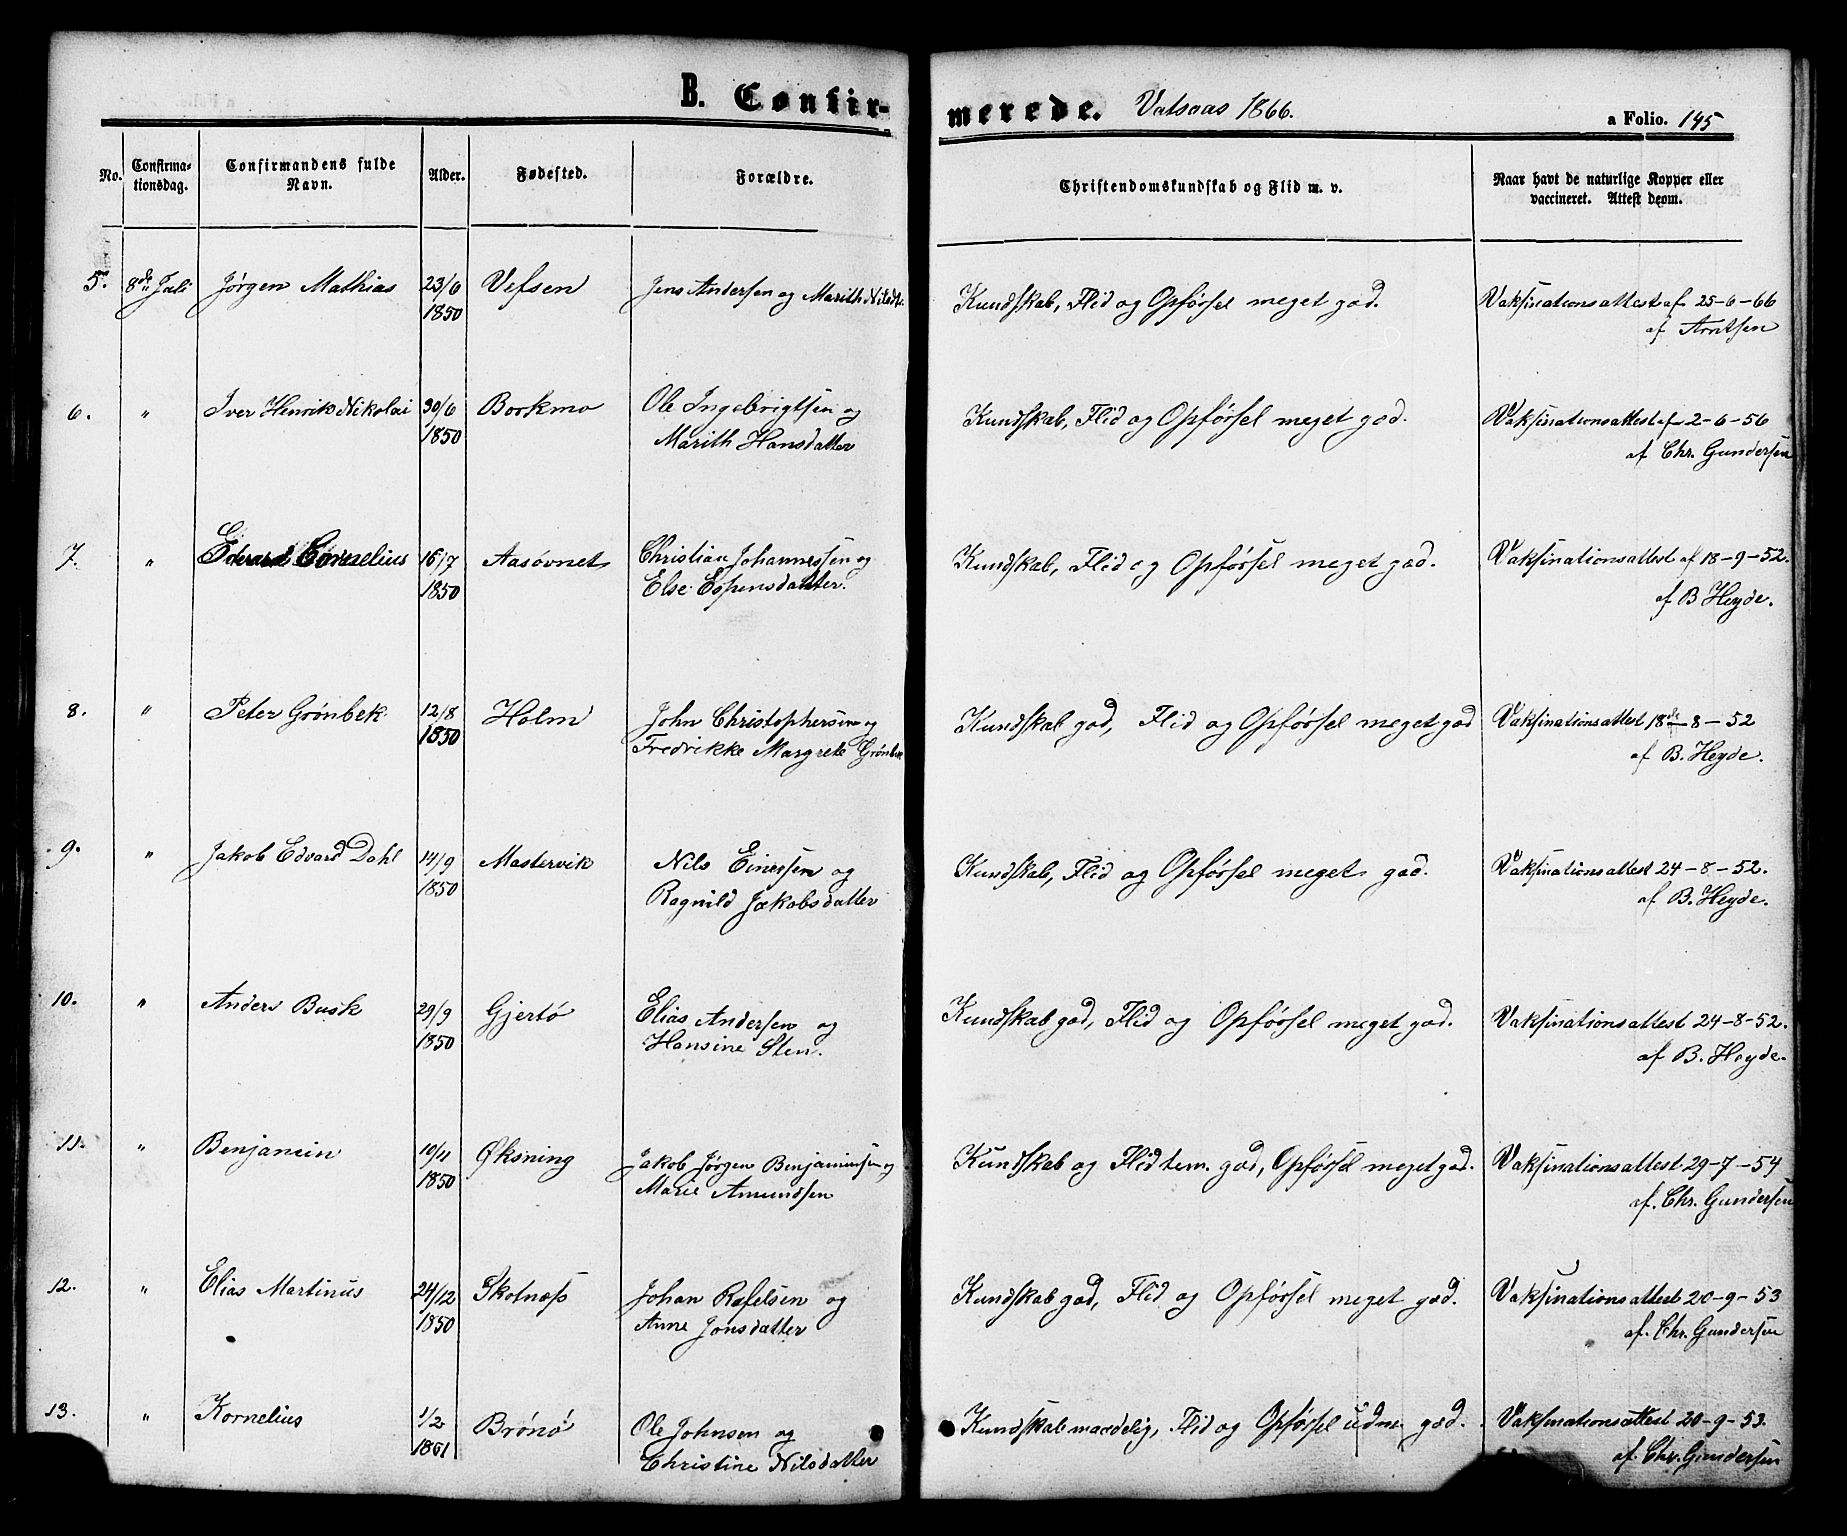 B. Confir-
merede. Vatsaas 1866.
a Folio. 145
No. Confirma-tionsdag. Confirmandens fulde Navn. Alder. Fødested. Forældre. Christendomskundskab og Flid m. v. Naar havt de naturlige Kopper eller vaccineret. Attest derom.
5. 8de Juli Jørgen Mathias 23/6 Vefsen Jens Andersen og Marith Nilsdt. Kundskab, Flid og Opførsel meget god. Vaksinationsattest af 25-6-66
1850 af Arntsen
6. " Iver Henrik Nikolai 30/6 Borkmo Ole Ingebrigtsen og Kundskab, Flid og Opførsel meget god. Vaksinationsattest af 2-6-56
1850 Marith Hansdatter af Chr. Gundersen
7. " Edvard Cornelius 16/7 Aasøvnet Christian Johannessen og Kundskab, Flid og Opførsel meget god. Vaksinationsattest af 18-9-52.
1850 Else Espensdatter. af B Heyde.
8. " Peter Grønbek 12/8 Holm John Christophersen og Kundskab god, Flid og Opførsel meget god Vaksinationsattest 18de-8-52
1850 Fredrikke Margrete Grønbek af B. Heyde.
9. " Jakob Edvard Dahl 14/9 Mastervik Nils Einersen og Kundskab, Flid og Opførsel meget god. Vaksinationsattest 24-8-52.
1850 Ragnild Jakobsdatter af B. Heyde.
10. " Anders Busk 29/9 Gjertø Elias Andersen og Kundskab god, Flid og Opførsel meget god. Vaksinationsattest 24-8-52.
1850 Hansine Sten. af B. Heyde.
11. " Benjamin 10/11 Øksning Jakob Jørgen Benjaminsen og Kundskab og Flid tem. god, Opførsel meget god. Vaksinationsattest 29-7-54
1850 Marie Amundsen af. Chr. Gundersen
12. " Elias Martinus 24/12 Skotnæs Johan Rafelsen og Kundskab god, Flid og Opførsel meget god. Vaksinationsattest 20-9-53
1850 Anne Jonsdatter af. Chr. Gundersen
13. " Kornelius 1/2 Brønø Ole Johnsen og Kundskab maadelig, Flid og Opførsel udm. god. Vaksinationsattest 20-9-53.
1851 Christine Nilsdatter af. Chr. Gundersen